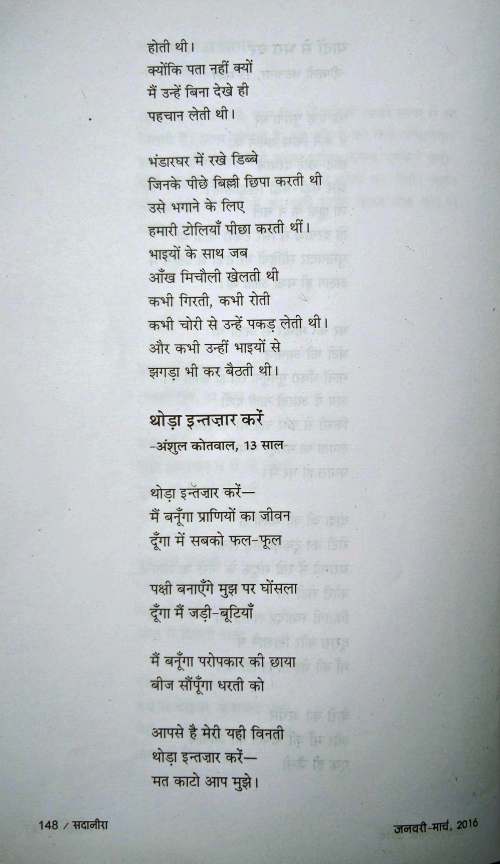 होती थी।
क्योंकि पता नहीं क्यों
मैं उन्हें बिना देखे ही
पहचान लेती थी।
भंडारघर में रखे डिब्बे
जिनके पीछे बिल्ली छिपा करती थी
उसे भगाने के लिए
हमारी टोलियाँ पीछा करती थीं।
भाइयों के साथ जब
आँख मिचौली खेलती थी
कभी गिरती, कभी रोती
कभी चोरी से उन्हें पकड़ लेती थी।
और कभी उन्हीं भाइयों से
झगड़ा भी कर बैठती थी।
थोड़ा इन्तज़ार करें
-अंशुल कोतवाल, 13 साल
थोड़ा इन्तज़ार करें—
मैं बनूँगा प्राणियों का जीवन
दूँगा में सबको फल-फूल
पक्षी बनाएँगे मुझ पर घोंसला
दूँगा मैं जड़ी-बूटियाँ
मैं बनूँगा परोपकार की छाया
बीज सौंपूँगा धरती को
आपसे है मेरी यही विनती
थोड़ा इन्तज़ार करें—
मत काटो आप मुझे।
148 / सदानीरा
जनवरी-मार्च, 2016